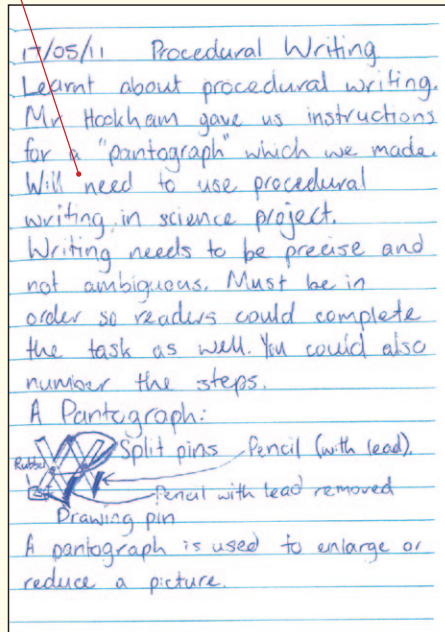 17/05/11 Procedural Writing
Learnt about procedural writing.
Mr Hookham gave us instructions
for a "pantograph" which we made.
Will need to use procedural
writing in science project.
Writing needs to be precise and
not ambiguous. Must be in
order so readers could complete
the task as well. You could also
number the steps.
A Pantograph:
Rubber Split pins Pencil (with lead).
Pencil with lead removed
Drawing pin
A pantograph is used to enlarge or
reduce a picture.